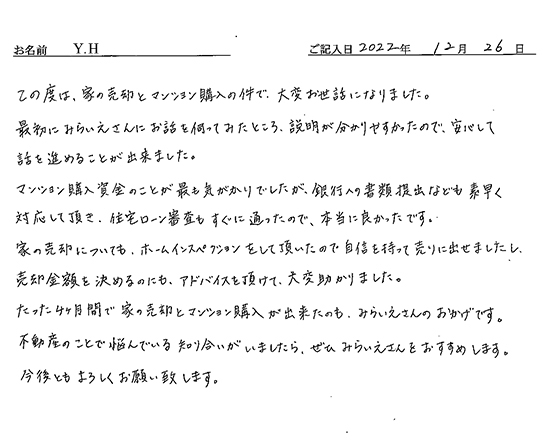 お名前 Y.H ご記入日 2022年 12月 26日
この度は、家の売却とマンション購入の件で、大変お世話になりました。
最初にみらいえさんにお話を伺ってみたところ、説明が分かりやすかったので、安心して
話を進めることが出来ました。
マンション購入資金のことが最も気がかりでしたが、銀行への書類提出なども素早く
対応して頂き、住宅ローン審査もすぐに通ったので、本当に良かったです。
家の売却についても、ホームインスペクションをして頂いたので自信を持って売りに出せましたし、
売却金額を決めるのにも、アドバイスを頂けて、大変助かりました。
たった4ヶ月間で家の売却とマンション購入が出来たのも、みらいえさんのおかげです。
不動産のことで悩んでいる知り合いがいましたら、ぜひみらいえさんをおすすめします。
今後ともよろしくお願い致します。